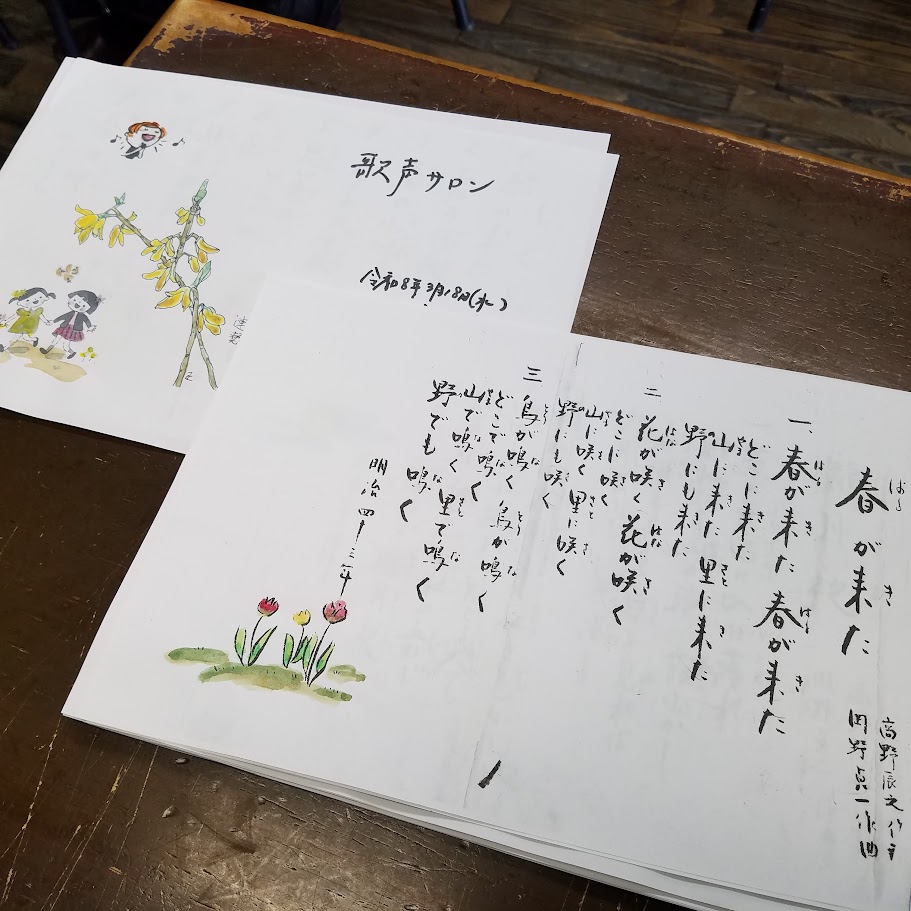 歌声サロン
令和8年3月18日(水)
連翹
春が来た
高野辰之作詞
岡野貞一作曲
一、春が来た 春が来た
どこに来た
山に来た 里に来た
野にも来た
二 花が咲く 花が咲く
どこに咲く
山に咲く 里に咲く
野にも咲く
三 鳥が鳴く 鳥が鳴く
どこで鳴く
山で鳴く 里で鳴く
野でも鳴く
明治四十三年